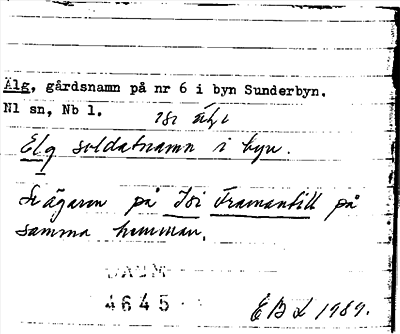 Älg, gårdsnamn på nr 6 i byn Sunderbyn.
Nl sn, Nb l.
Elg soldatnamn i byn.
Se ägaren på Isi Framantill på
samma hemman.
DAUM
4645
EBL 1989.